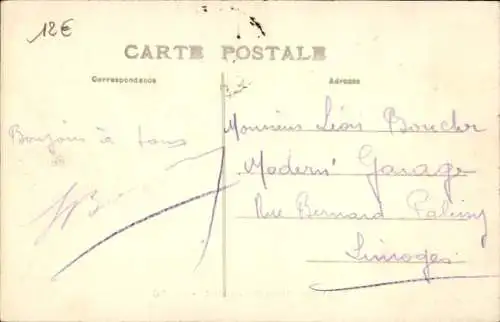 12€
CARTE POSTALE
Correspondance
Adresse
Bonjour à tous
Monsieur Léon Boucher
Modern' Garage
Rue Bernard Palissy
Limoges